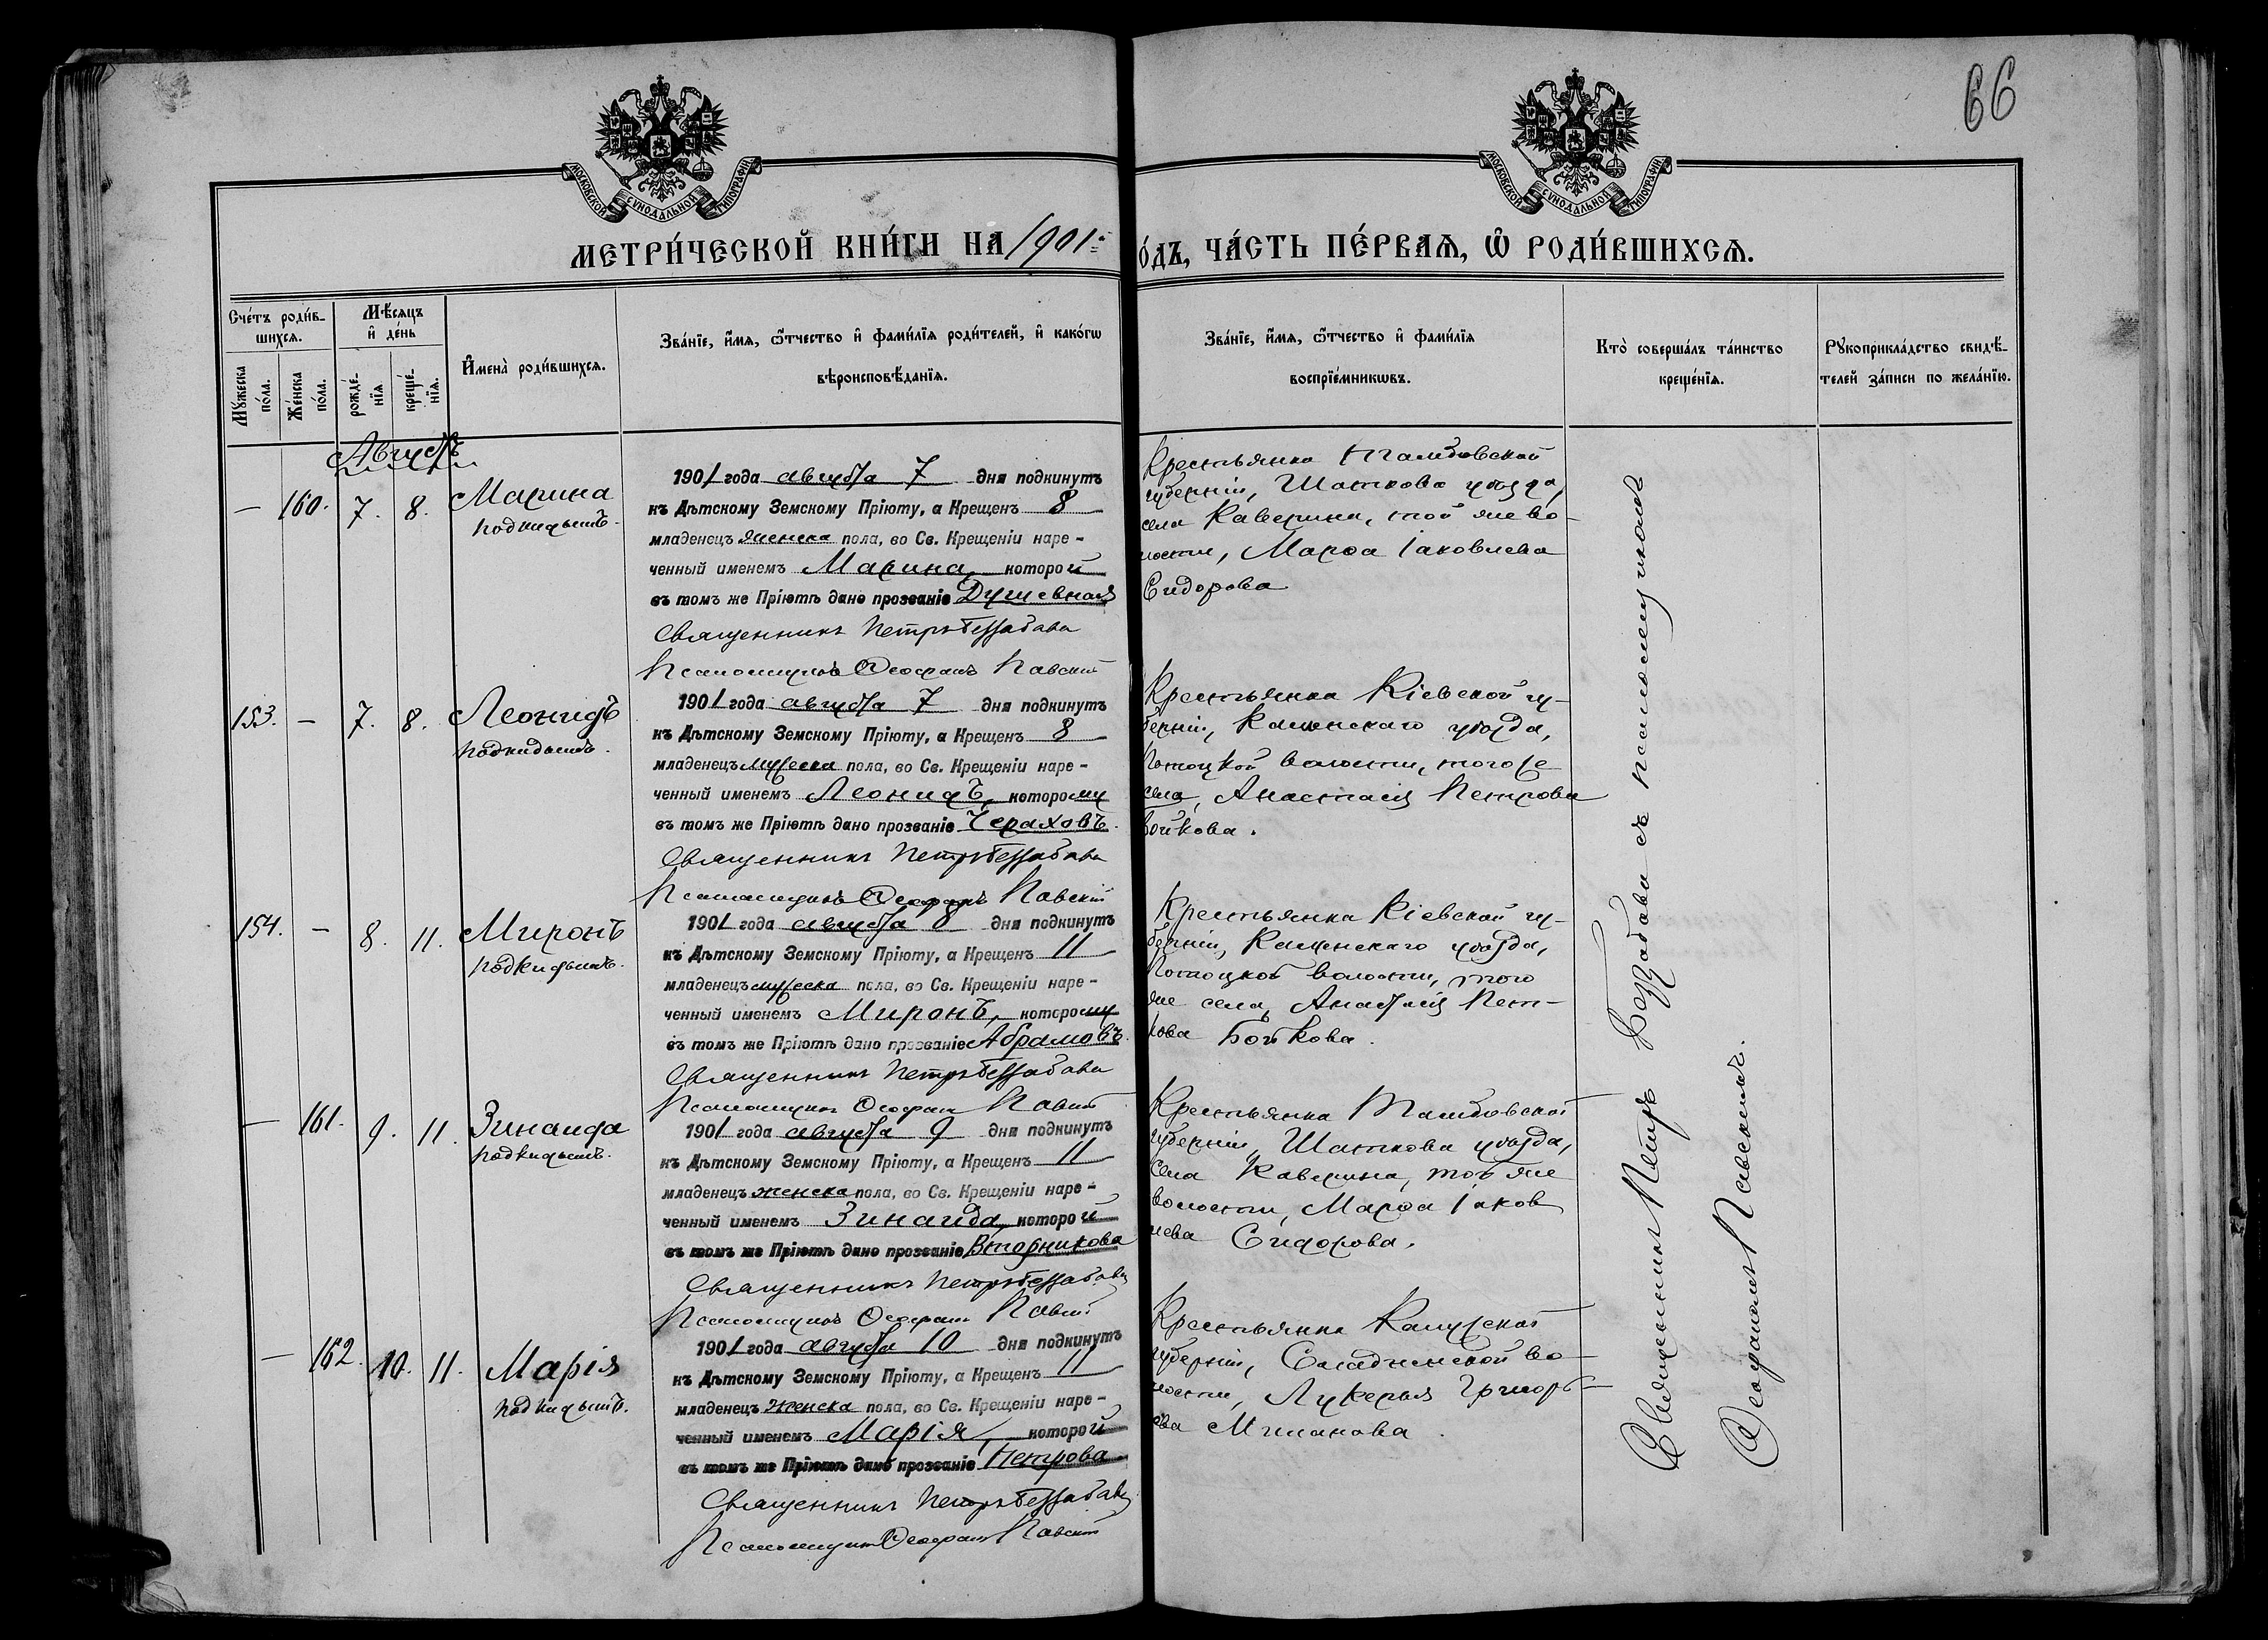 66
МОСКОВСКОЙ СУНОДАЛЬНОЙ ТИПОГРАФІИ
МОСКОВСКОЙ СУНОДАЛЬНОЙ ТИПОГРАФІИ
МЕТРИ́ЧЕСКОЙ КНИ́ГИ НА 1901.
О́ДЪ, ЧА́СТЬ ПЕ́РВАѦ, Ѿ РОДИ́ВШИХСѦ.
Счетъ роди́в-
шихсѧ.
Мꙋжеска по́ла.
Же́нска по́ла.
Мѣ́сѧцъ
и де́нь
рожде́-нїѧ
креще́-нїѧ.
Имена̀ роди́вшихсѧ.
Зва́нїе, и́мѧ, ѻ́тчество и фами́лїѧ роди́телей, и како́гѡ
вѣроисповѣ́данїѧ.
Зва́нїе, и́мѧ, ѻ́тчество и фами́лїѧ
воспрїе́мникѡвъ.
Кто̀ соверша́лъ та́инство
креще́нїѧ.
Рꙋкоприкла́дство свидѣ́-
телей за́писи по жела́нїю.
Августъ
— 160. 7. 8. Марина
подкидышъ.
1901 года августа 7 дня подкинутъ
къ Дѣтскому Земскому Пріюту, а Крещенъ 8
младенецъ женска пола, во Св. Крещеніи наре-
ченный именемъ Марина, которой
въ томъ же Пріютѣ дано прозваніе Душевная
Священникъ Петръ Беззабава
Псаломщикъ Ѳеофанъ Павскій
Крестьянка Тамбовской
губерніи, Шаткова уѣзда,
села Каверина, той же во-
лости, Марѳа Іаковлева
Сидорова
153. — 7. 8. Леонидъ
подкидышъ.
1901 года августа 7 дня подкинутъ
къ Дѣтскому Земскому Пріюту, а Крещенъ 8
младенецъ мужеска пола, во Св. Крещеніи наре-
ченный именемъ Леонидъ, которому
въ томъ же Пріютѣ дано прозваніе Чераховъ.
Священникъ Петръ Беззабава
Псаломщикъ Ѳеофанъ Павскій
Крестьянка Кіевской гу-
берніи, Каменскаго уѣзда,
Потоцкой волости, того же
села, Анастасія Петрова
Бойкова.
154. — 8. 11. Миронъ
подкидышъ.
1901 года августа 8 дня подкинутъ
къ Дѣтскому Земскому Пріюту, а Крещенъ 11
младенецъ мужеска пола, во Св. Крещеніи наре-
ченный именемъ Миронъ, которому
въ томъ же Пріютѣ дано прозваніе Абрамовъ.
Священникъ Петръ Беззабава
Псаломщикъ Ѳеофанъ Павскій
Крестьянка Кіевской гу-
берніи, Каменскаго уѣзда,
Потоцкой волости, того
же села, Анастасія Пет-
рова Бойкова.
— 161. 9. 11. Зинаида
подкидышъ.
1901 года августа 9 дня подкинутъ
къ Дѣтскому Земскому Пріюту, а Крещенъ 11
младенецъ женска пола, во Св. Крещеніи наре-
ченный именемъ Зинаида, которой
въ томъ же Пріютѣ дано прозваніе Вторникова
Священникъ Петръ Беззабава
Псаломщикъ Ѳеофанъ Павскій
Крестьянка Тамбовской
губерніи, Шаткова уѣзда,
села Каверина, той же
волости, Марѳа Іаков
лева Сидорова.
— 162. 10. 11. Марія
подкидышъ.
1901 года августа 10 дня подкинутъ
къ Дѣтскому Земскому Пріюту, а Крещенъ 11
младенецъ женска пола, во Св. Крещеніи наре-
ченный именемъ Марія, которой
въ томъ же Пріютѣ дано прозваніе Петрова
Священникъ Петръ Беззабава
Псаломщикъ Ѳеофанъ Павскій
Крестьянка Калужской
губерніи, во-
лости, Лукерья Григорь-
ева Миланова
Священникъ Петръ Беззабава съ псаломщикомъ
Ѳеофаномъ Павскимъ.